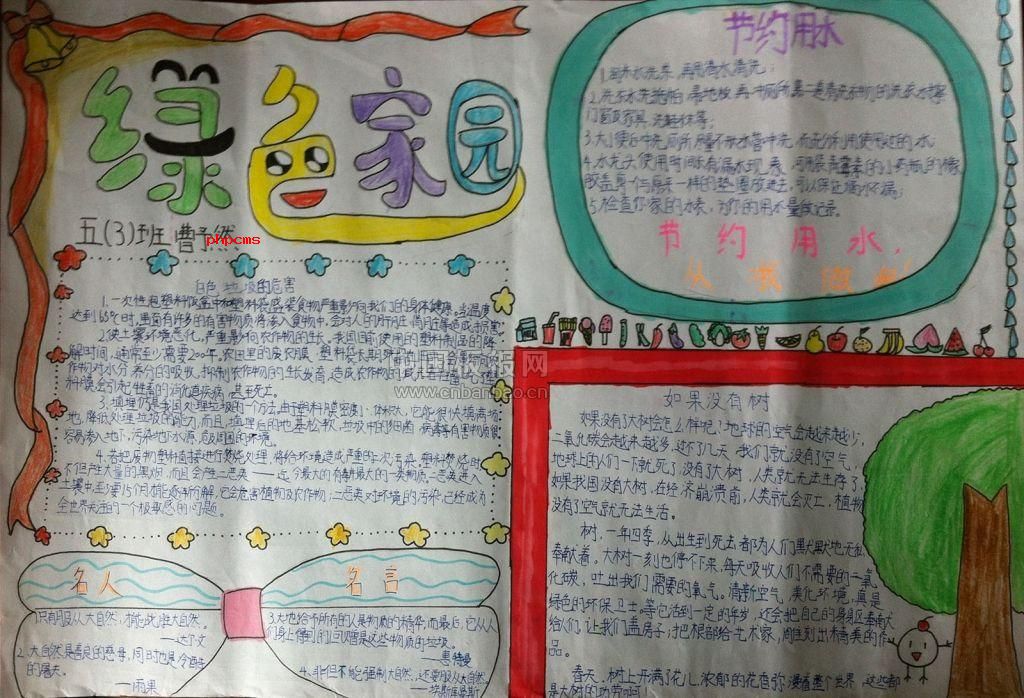 绿色家园
五(3)班 曹予然
phpcms
白色垃圾的危害
1.一次性泡塑料饭盒中和塑料袋盛装食物严重影响我们的身体健康。当温度
达到65℃时,里面有许多的有害物质将渗入食物中,会对人的肝脏、
2.使土壤环境恶化,严重影响农作物的生长。我国目前使用的塑料制品的降
解时间,通常至少需要200年。农田里的废农膜、塑料袋长期残留在田中,会影响
作物对水分、养分的吸收,抑制农作物的生长发育,造成农作物的
料膜,会引起牲畜的消化道疾病,甚至死亡。
3.填埋仍是我国处理垃圾的一个方法,由于塑料膜密度小、体积大,它能很快填满场
地,降低处理垃圾的能力;而且,填埋后的地基松软,垃圾中的细菌、病毒等有害物质很
容易渗入地下,污染地下水源,危及周围的环境。
4.若把废物塑料直接进行焚烧处理,将给环境造成严重的二次污染。塑料焚烧时,
不但产生大量的黑烟,而且会产生二恶英——迄今最大的有毒
土壤中,至少要15个月才能逐渐分解,它会危害植物及农作物;二恶英对环境的污染,已经成为
全世界关注的一个极敏感的问题。
名人 名言
只有服从大自然,才能战胜大自然。
——达尔文
2.大自然是善良的慈母,同时也是冷酷
的屠夫。
——雨果
3.大地给予所有的人是物质的精华,而最后,它从人
们身上得到的回赠是这些物质的垃圾。
——惠特曼
4.非但不能强制大自然,还要服从大自然。
——埃斯库罗斯
节约用水
再用清水清洗;
门窗及家具、洗鞋袜等;
3.大小便后冲洗厕所,尽量不开水管冲洗,而应
4.水龙头使用时间长有漏水现象,可用装青霉素的小药瓶的橡
胶盖剪一个与原来一样的垫圈放进去,可以保证滴水不漏;
5.检查你家的水表,为你的用水量做记录。
节约用水,
从我做起!
www.cnbanbao.cn
如果没有树
如果没有了大树会怎么样呢?地球的空气会越来越少,
二氧化碳会越来越多,过不了几天,我们就没有了空气,
地球上的人们一下就死了,没有了大树,人类就无法生存了,
如果我国没有大树,在经济前,人类就会灭亡,植物
没有了空气就无法生活。
树,一年四季,从出生到死去,都为人们默默地无私
奉献着。大树一刻也停不下来,每天吸收人们不需要的二氧
化碳,吐出我们需要的氧气。清新空气,美化环境,真是
绿色的环保卫士。等它活到一定的年岁,还会把自己的身躯奉献
给人们,让我们盖房子;把根部给艺术家,雕刻出精美的作
品。
春天,树上开满了花儿,浓郁的花香弥漫着整个世界,这些都
是大树的功劳啊!